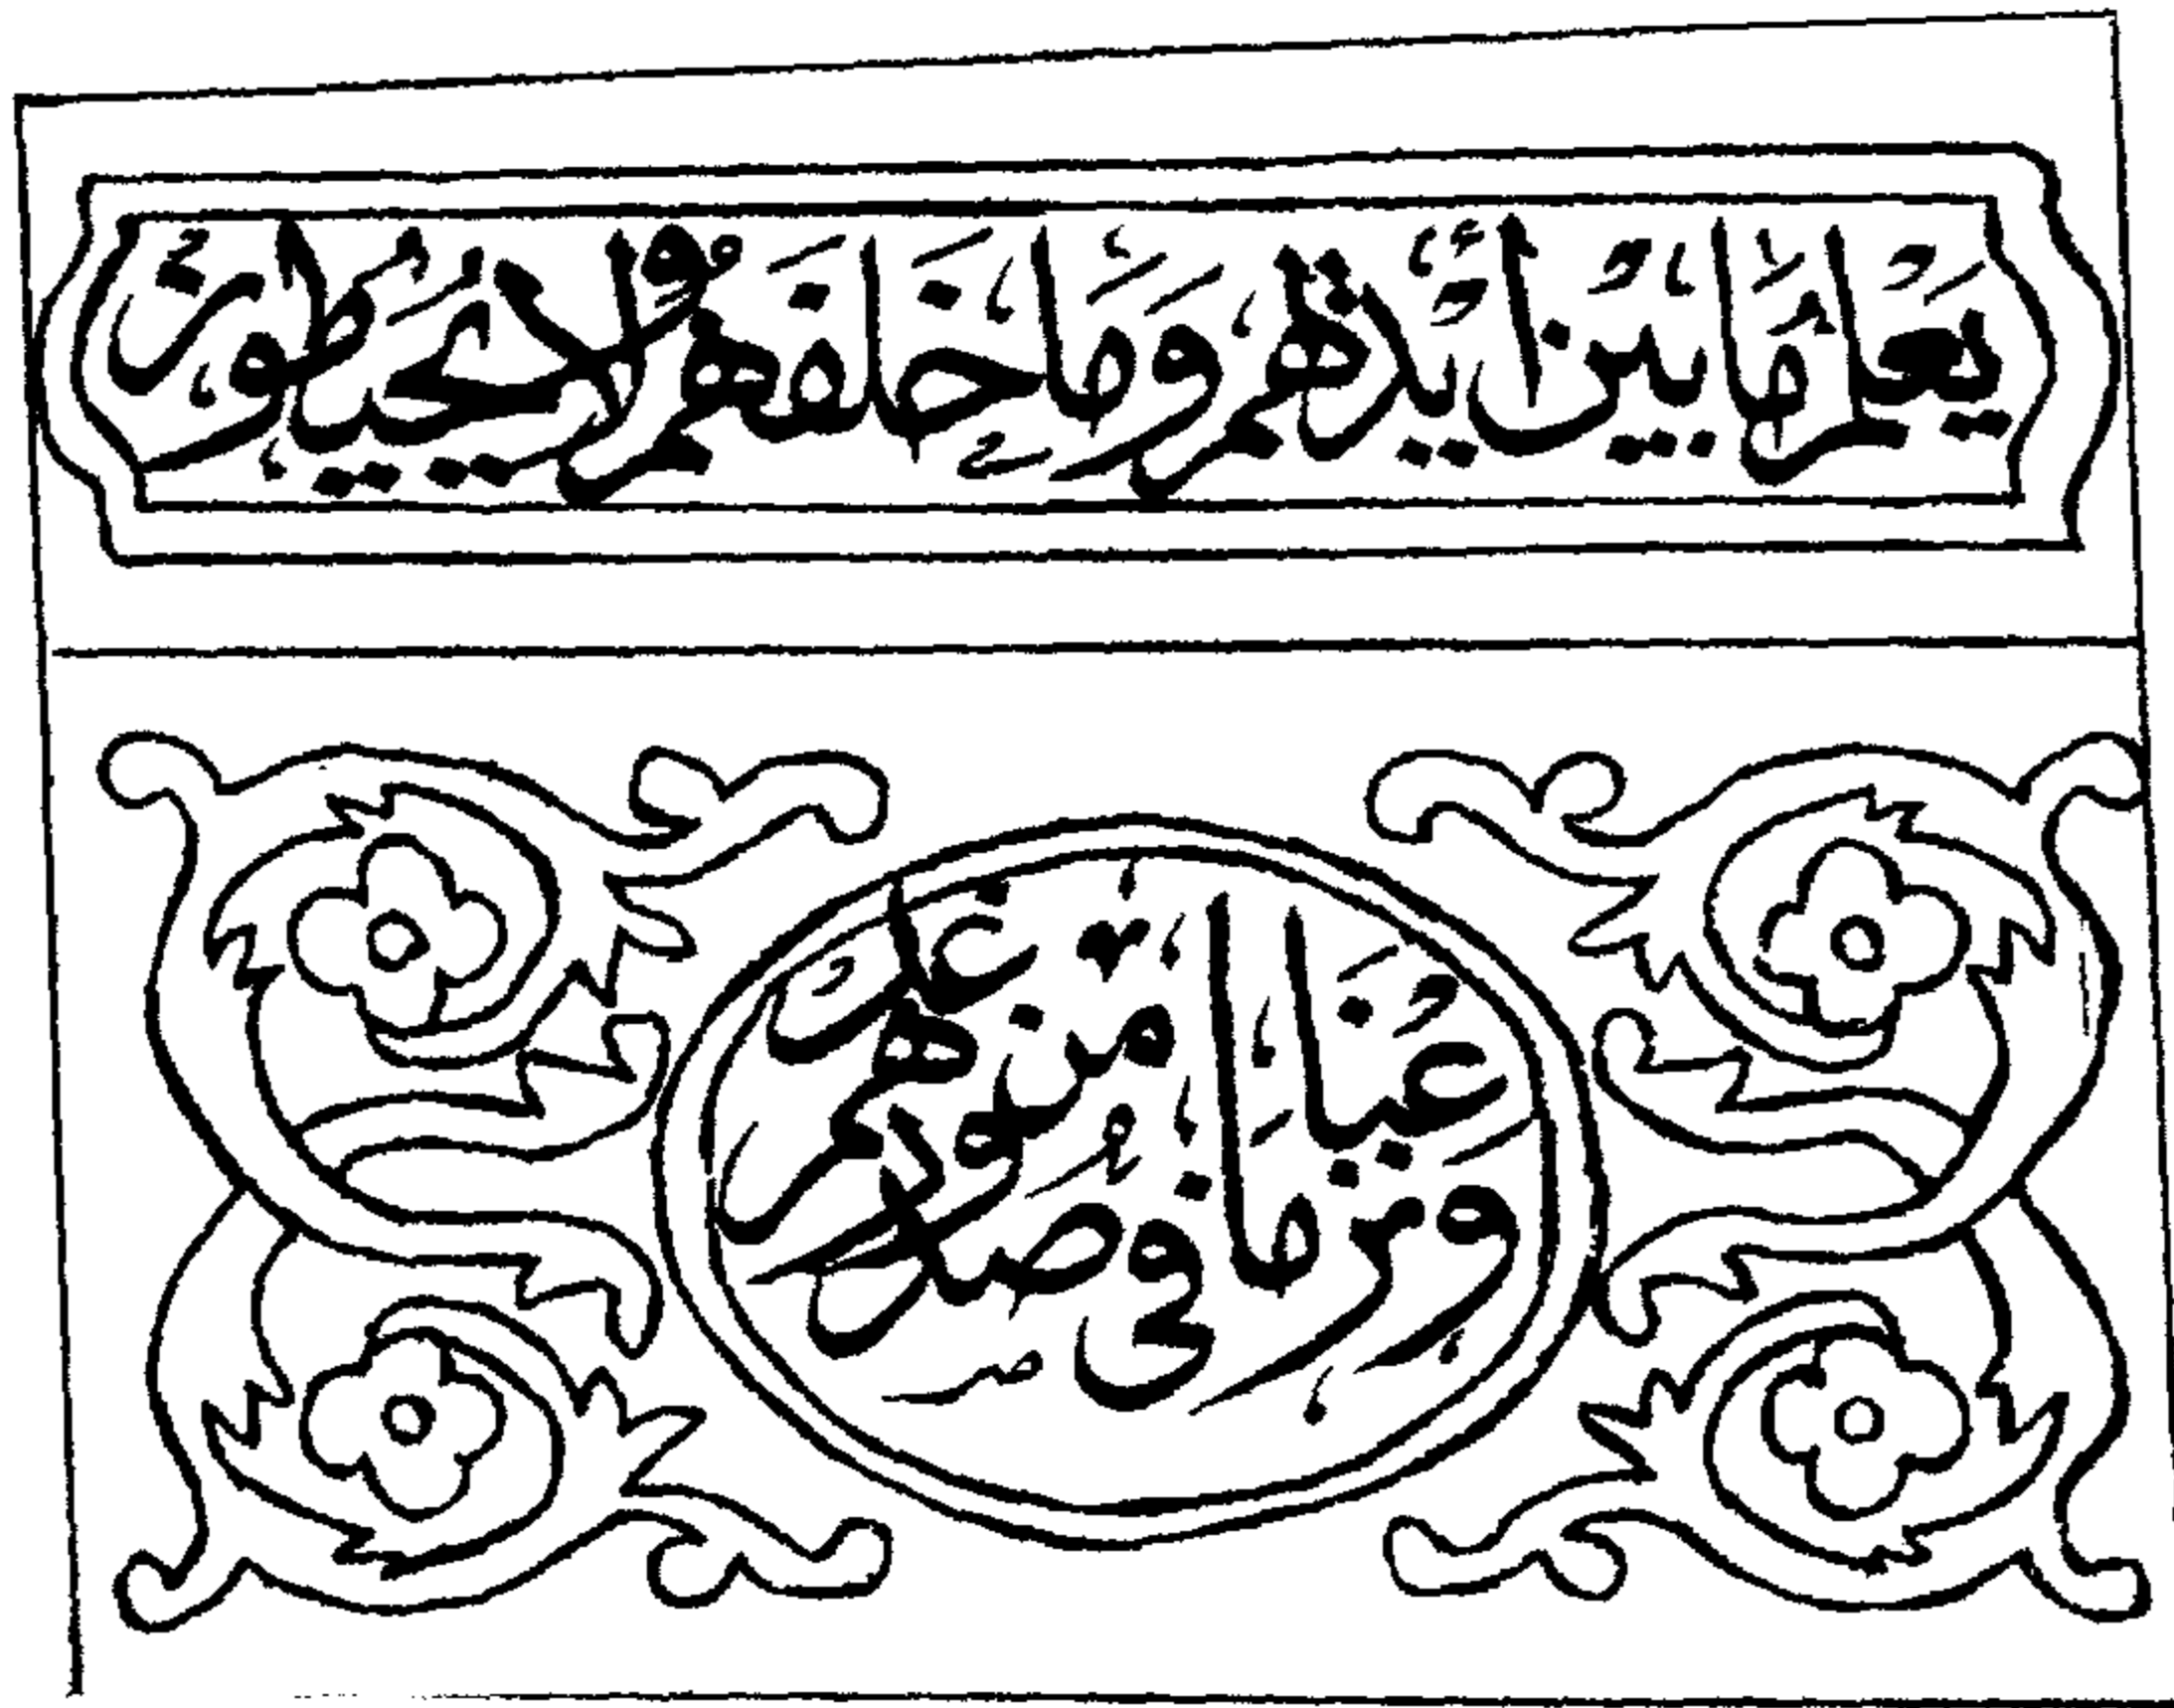 يَعْلَمُ مَا بَيْنَ أَيْدِيهِمْ وَمَا خَلْفَهُمْ وَلَا يُحِيطُونَ
وَنَزَعْنَا مَا فِي صُدُورِهِمْ مِنْ غِلٍّ